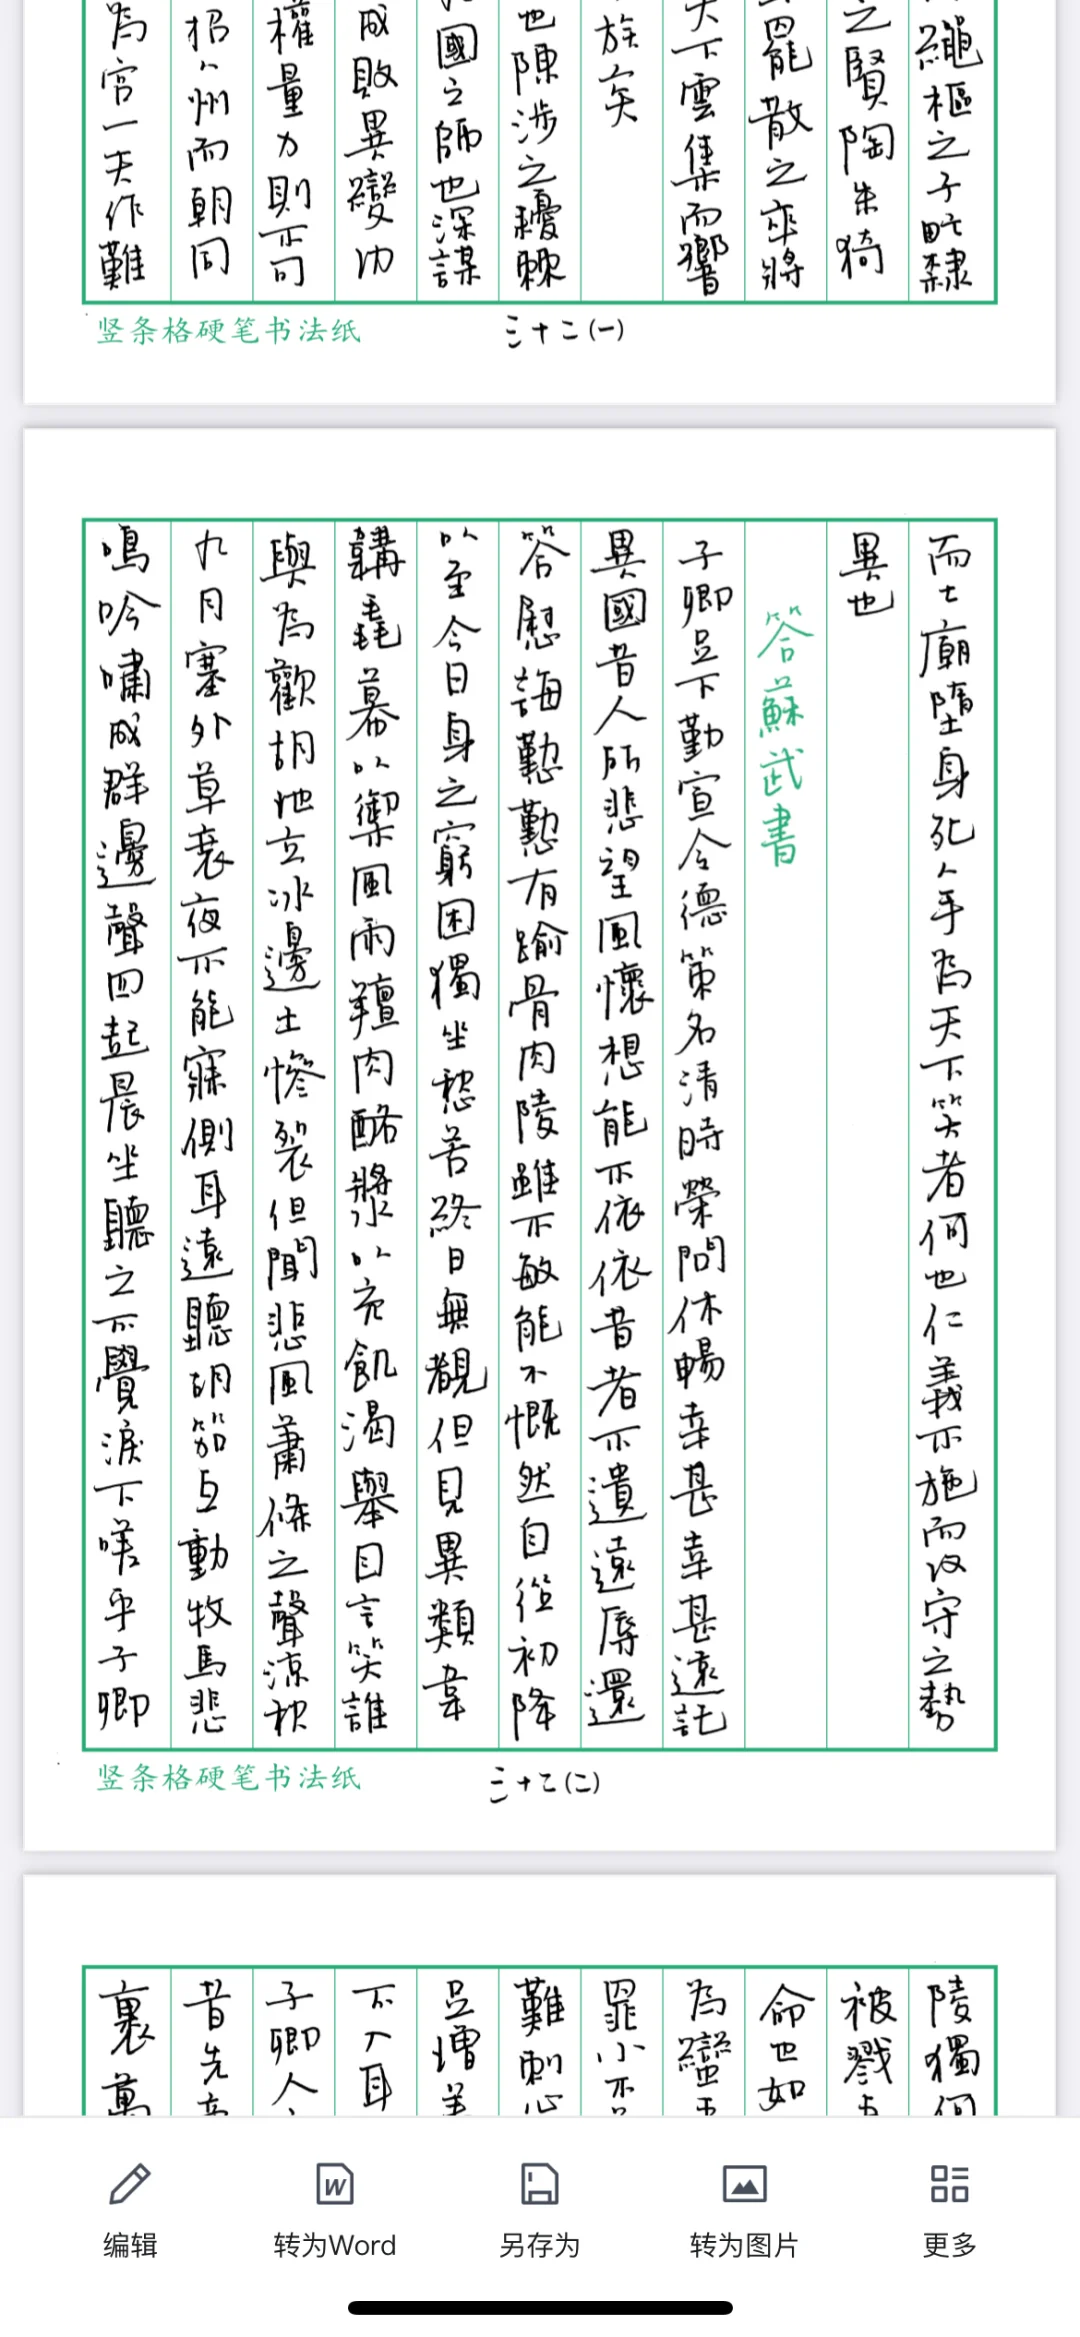 繩樞之子甿隸
之賢陶朱猗
罷散之卒將
天下雲集而響
族矣
也陳涉之耰棘
國之師也深謀
成敗異變功
權量力則不可
招八州而朝同
為宮一夫作難
竖条格硬笔书法纸
三十二(一)
而七廟墮身死人手為天下笑者何也仁義不施而攻守之勢
異也
答蘇武書
子卿足下勤宣令德策名清時榮問休暢幸甚幸甚遠託
異國昔人所悲望風懷想能不依依昔者不遺遠辱還
答慰誨懃懃有踰骨肉陵雖不敏能不慨然自從初降
以至今日身之窮困獨坐愁苦終日無覩但見異類韋
韝毳幕以禦風雨羶肉酪漿以充飢渴舉目言笑誰
與為歡胡地玄冰邊土慘裂但聞悲風蕭條之聲涼秋
九月塞外草衰夜不能寐側耳遠聽胡笳互動牧馬悲
鳴吟嘯成群邊聲四起晨坐聽之不覺淚下嗟乎子卿
竖条格硬笔书法纸
三十二(二)
陵獨何
被戮
命也如
為蠻
罪小不
難刺心
足增羞
不入耳
子卿人
昔先帝
裹萬
编辑
转为Word
另存为
转为图片
更多